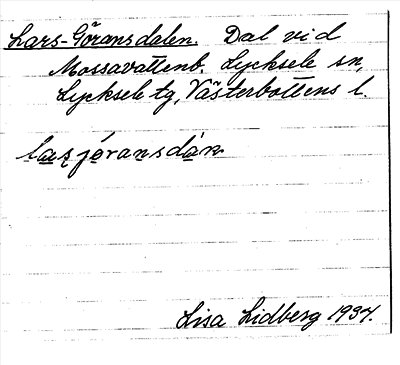 Lars-Göransdalen. Dal vid
Mossavattenb. Lycksele sn,
Lycksele tg, Västerbottens l.
Lisa Lidberg 1934.